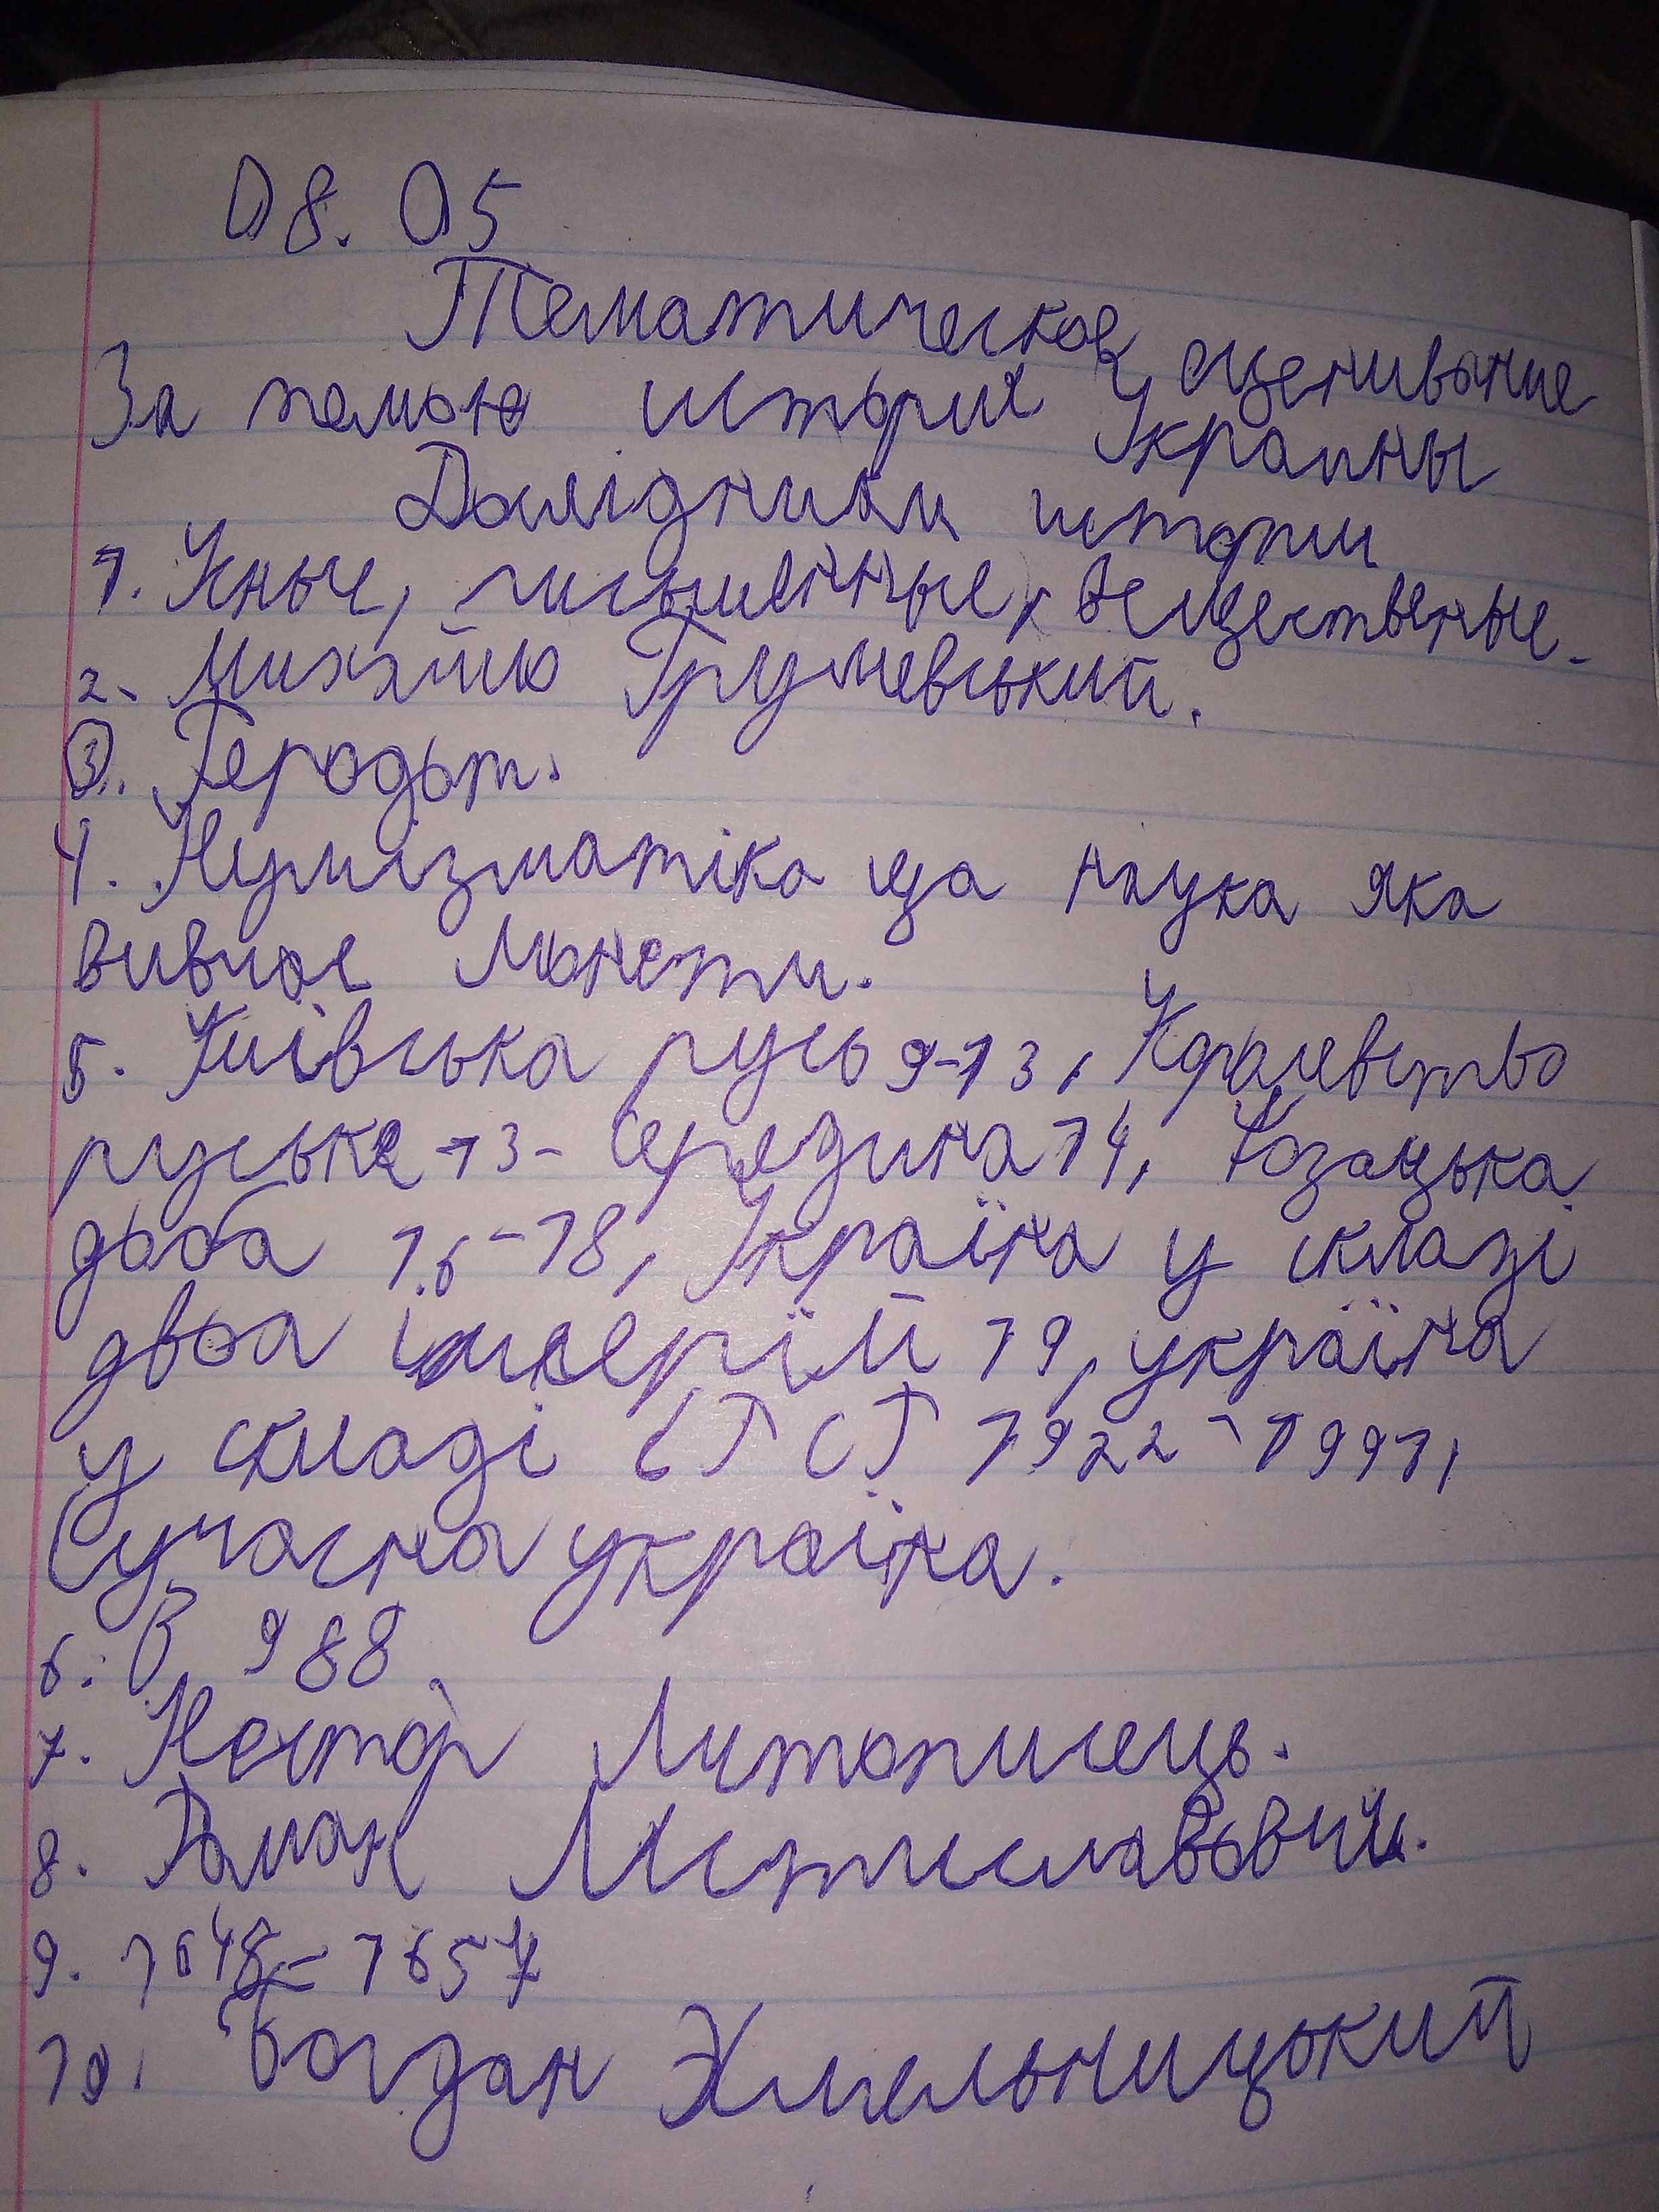 08. 05
Тематическое оценивание
За темою истории Украины
Дослідники истории
1. Усные, письменные, вещественные.
2. Михайло Грушевський.
3. Геродот.
4. Нумізматіка ца наука яка
вивчає монети.
5. Київська русь 9-13, Королевство
руське 13- середина 14, Козацька
доба 16-18, Україна у складі
двоа імперій 19, україна
у складі СРСР 1922-1991,
Сучасна україна.
6. В 988.
7. Нестор Литописець.
8. Роман Мстиславович.
9. 1648-1657
10. Богдан Хмельницький